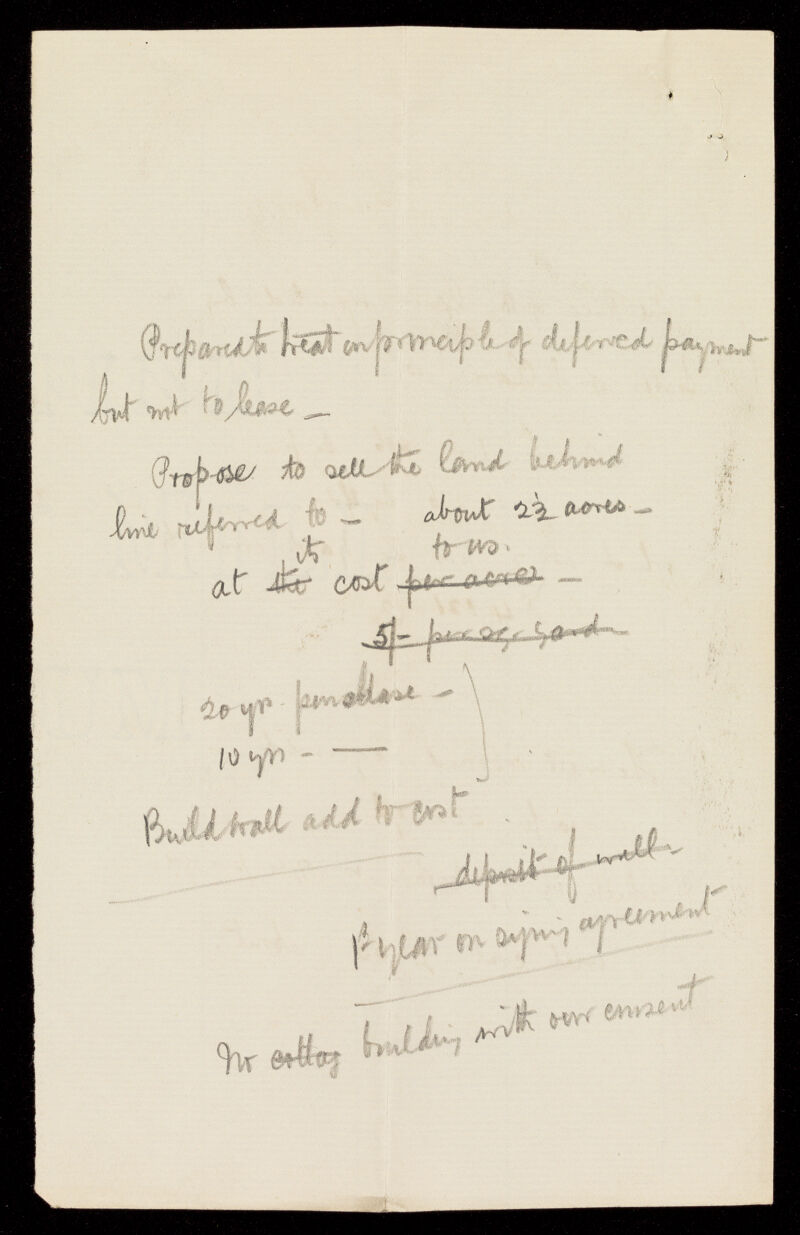 Prepared to treat on principle of deferred payment
but not to lease —
Propose to sell the land behind
line referred to — about 2½ acres —
its to us.
at the cost per acre —
5/- per sq. yard
20 yrs. purchase —
10 yrs — —
Build wall add to cost
deposit of well
1st year on signing agreement
No cottag building with our consent